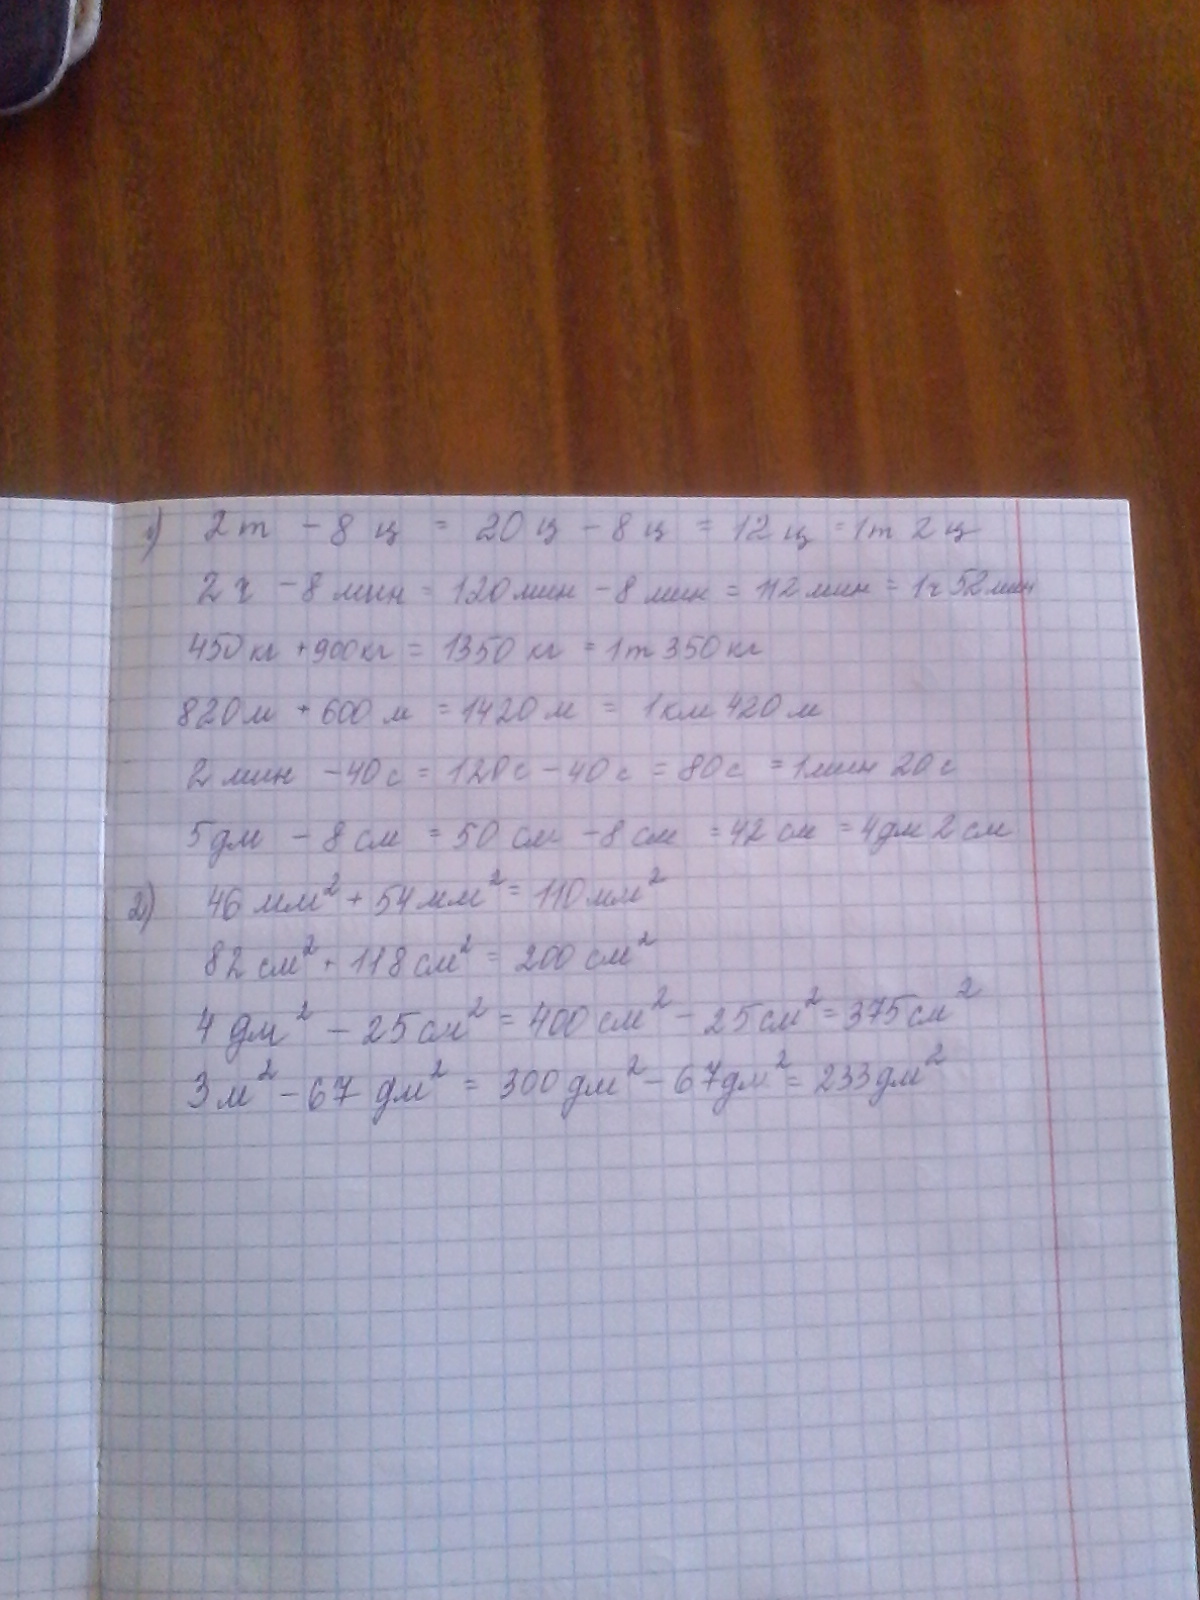 1) 2т - 8ц = 20ц - 8ц = 12ц = 1т 2ц
2ч - 8мин = 120мин - 8мин = 112мин = 1ч 52мин
450кг + 900кг = 1350кг = 1т 350кг
820м + 600м = 1420м = 1км 420м
2мин - 40с = 120с - 40с = 80с = 1мин 20с
5дм - 8см = 50см - 8см = 42см = 4дм 2см
2) 46мм² + 54мм² = 110мм²
82см² + 118см² = 200см²
4дм² - 25см² = 400см² - 25см² = 375см²
3м² - 67дм² = 300дм² - 67дм² = 233дм²